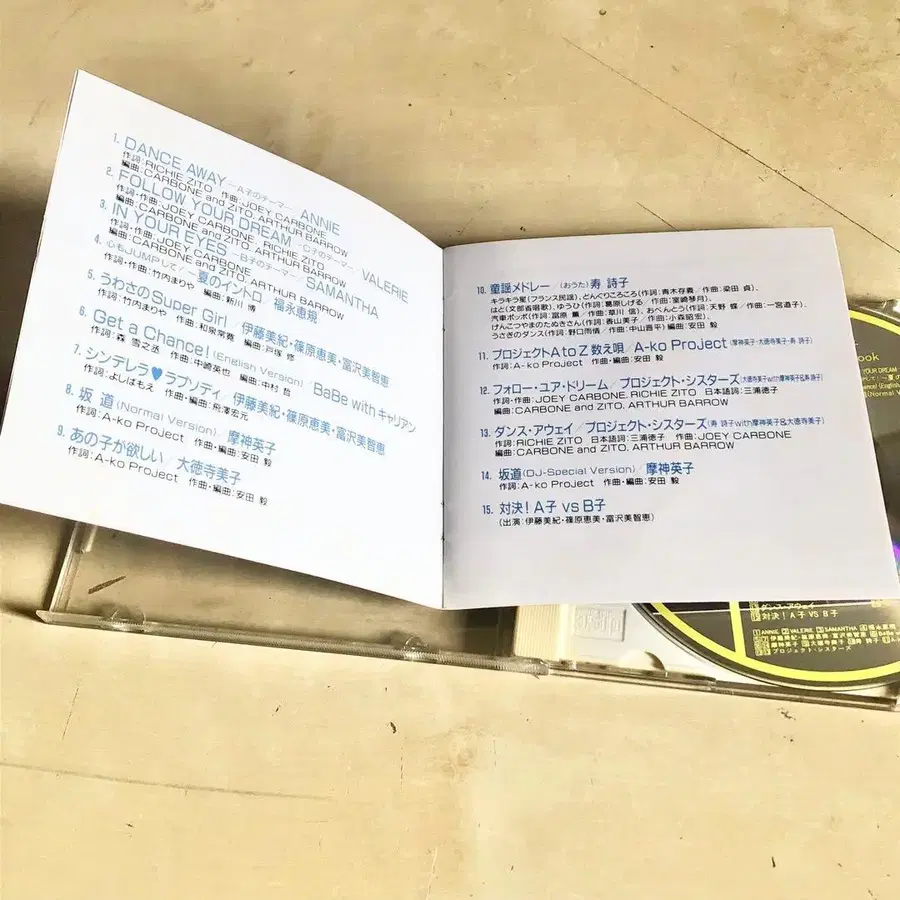 1. DANCE AWAY—A子のテーマ—／ANNIE
作詞:RICHIE ZITO 作曲:JOEY CARBONE
編曲:CARBONE and ZITO, ARTHUR BARROW
2. FOLLOW YOUR DREAM—C子のテーマ—／VALERIE
作詞・作曲:JOEY CARBONE, RICHIE ZITO
編曲:CARBONE and ZITO, ARTHUR BARROW
3. IN YOUR EYES—B子のテーマ—／SAMANTHA
作詞・作曲:JOEY CARBONE
編曲:CARBONE and ZITO, ARTHUR BARROW
4. 心もJUMPして／〜夏のイントロ／福永恵規
作詞・作曲:竹内まりや 編曲:新川 博
5. うわさのSuper Girl／伊藤美紀・篠原恵美・富沢美智恵
作詞:竹内まりや 作曲:和泉常寛 編曲:戸塚 修
6. Get a Chance!(English Version)／BaBe with キャリアン
作詞:森 雪之丞 作曲:中崎英也 編曲:中村 哲
7. シンデレラ♥ラプソディ／伊藤美紀・篠原恵美・富沢美智恵
作詞:よしばもえ 作曲・編曲:飛澤宏元
8. 坂 道(Normal Version)／摩神英子
作詞:A-ko Project 作曲・編曲:安田 毅
9. あの子が欲しい／大徳寺美子
作詞:A-ko Project 作曲・編曲:安田 毅
10. 童謡メドレー／(おうた)寿 詩子
キラキラ星(フランス民謡)、どんぐりころころ(作詞:青木存義／作曲:梁田 貞)、
はと(文部省唱歌)、ゆうひ(作詞:葛原しげる／作曲:室崎琴月)、
汽車ポッポ(作詞:富原 薫／作曲:草川 信)、おべんとう(作詞:天野 蝶／作曲:一宮道子)、
げんこつやまのたぬきさん(作詞:香山美子／作曲:小森昭宏)、
うさぎのダンス(作詞:野口雨情／作曲:中山晋平)編曲:安田 毅
11. プロジェクトA to Z 数え唄／A-ko Project(摩神英子・大徳寺美子・寿 詩子)
作詞:A-ko Project 作曲・編曲:安田 毅
12. フォロー・ユア・ドリーム／プロジェクト・シスターズ(大徳寺美子with摩神英子&寿詩子)
作詞・作曲:JOEY CARBONE, RICHIE ZITO 日本語詞:三浦徳子
編曲:CARBONE and ZITO, ARTHUR BARROW
13. ダンス・アウェイ／プロジェクト・シスターズ(寿 詩子with摩神英子&大徳寺美子)
作詞:RICHIE ZITO 日本語詞:三浦徳子 作曲:JOEY CARBONE
編曲:CARBONE and ZITO, ARTHUR BARROW
14. 坂道(DJ-Special Version)／摩神英子
作詞:A-ko Project 作曲・編曲:安田 毅
15. 対決!A子 vs B子
(出演:伊藤美紀・篠原恵美・富沢美智恵)
ook
YOUR DREAM
ダンス・アウェイ
対決!A子 VS B子
1 ANNIE 2 VALERIE 3 SAMANTHA
プロジェクト・シスターズ